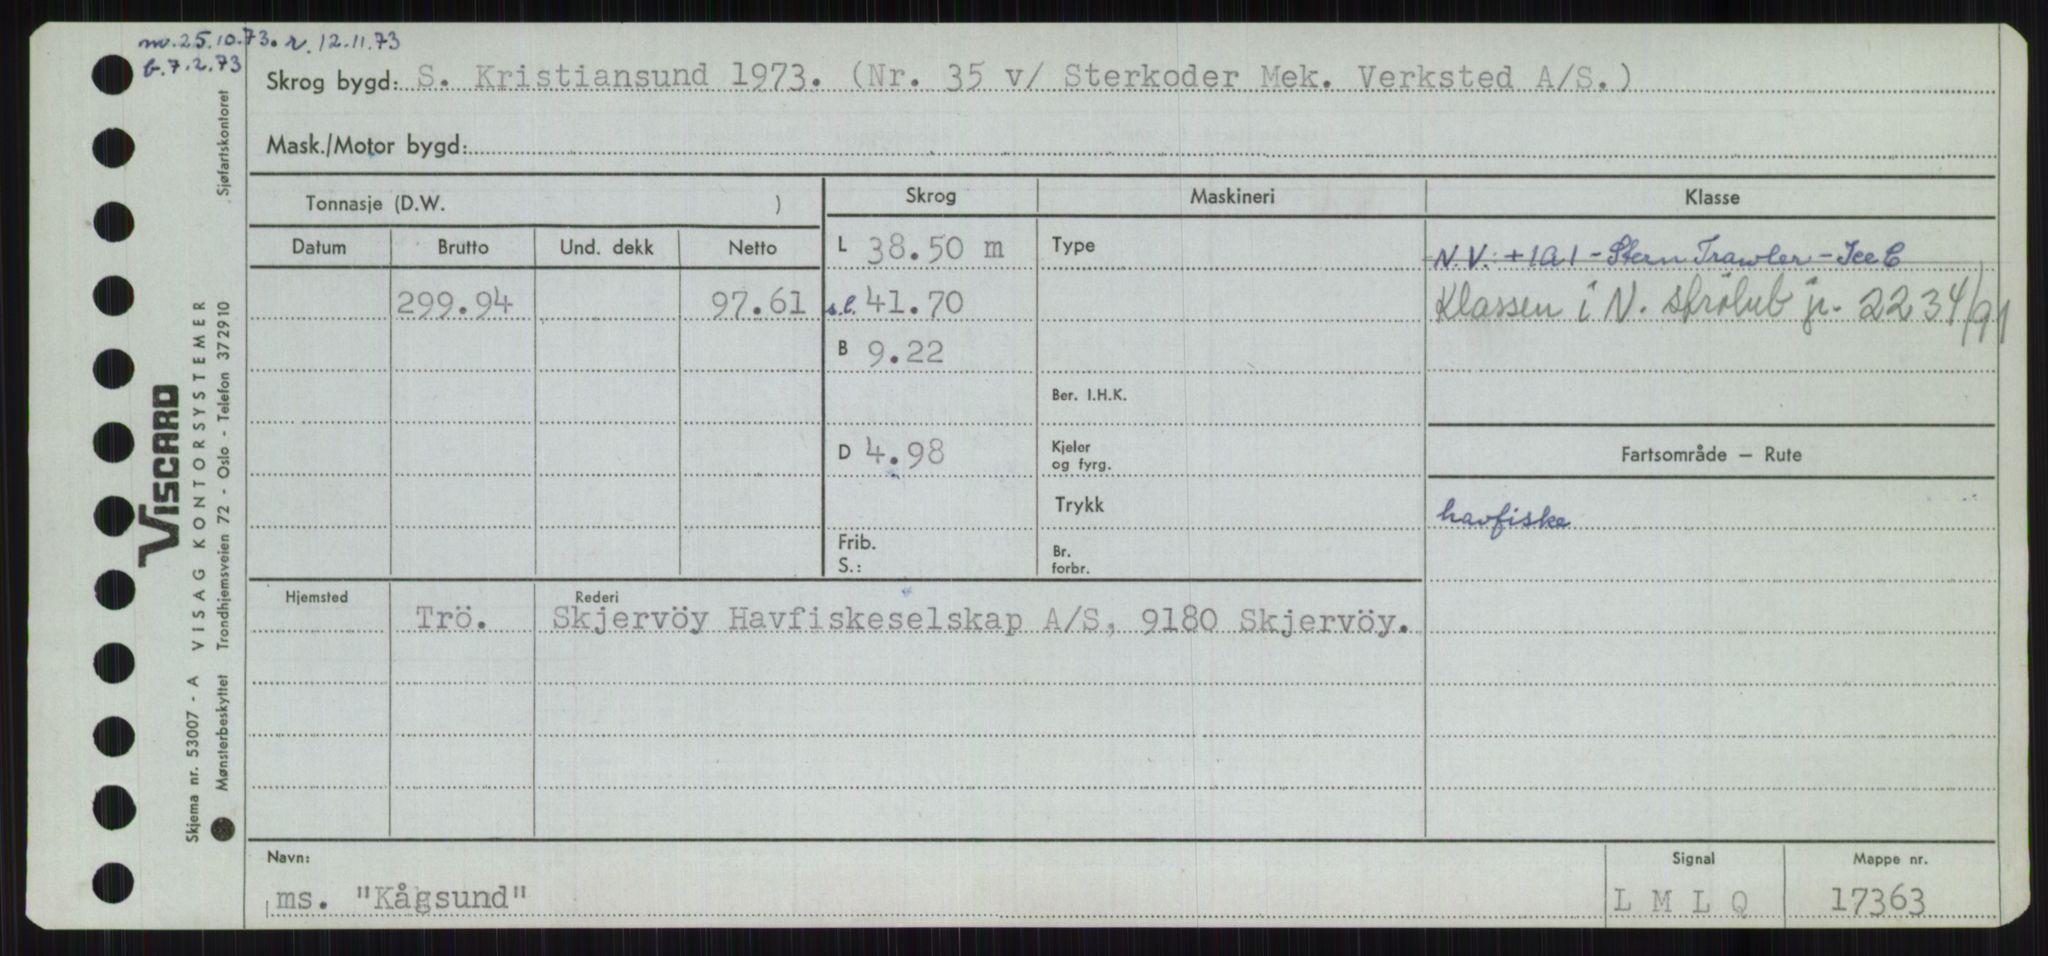 m.25.10.73. r. 12.11.73
b.7.2.73
Skrog bygd: S. Kristiansund 1973. (Nr. 35 v/ Sterkoder Mek. Verksted A/S.)
Mask./Motor bygd:
Tonnasje (D.W. )
Skrog Maskineri Klasse
Datum Brutto Und. dekk Netto
L 38.50 m
Type
N.V. +1A1 - Stern Trawler - Ice C
299.94 97.61 s.l. 41.70
Klassen i N. jr. 2234/91
B 9.22
Ber. I.H.K.
D 4.98
Kjeler
og fyrg.
Fartsområde – Rute
Trykk
havfiske
Frib.
S.:
Br.
forbr.
Hjemsted Rederi
Trö. Skjervöy Havfiskeselskap A/S, 9180 Skjervöy.
Navn: Signal Mappe nr.
ms. "Kågsund" L M L Q 17363
VISCARD
Skjema nr. 53007 - A VISAG KONTORSYSTEMER
Mønsterbeskyttet Trondhjemsveien 72 - Oslo - Telefon 372910
Sjøfartskontoret